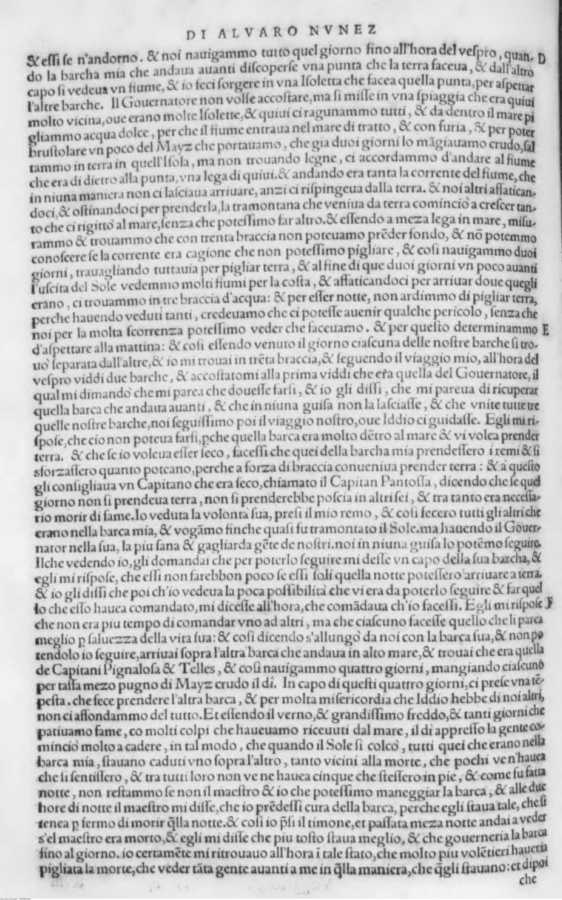 DI ALVARO NVNEZ
& essi se n'andorno. & noi nauigammo tutto quel giorno fino all'hora del vespro, quan- D
do la barcha mia che andaua auanti discoperse vna punta che la terra faceua, & dall'altro
capo si vedeua vn fiume, & io feci sorgere in vna Isoletta che facea quella punta, per aspettar
l'altre barche. Il Gouernatore non volse accostare, ma si misse in vna spiaggia che era quiui
molto vicina, oue erano molte Isolette, & quiui ci ragunammo tutti, & da dentro il mare pi
gliammo acqua dolce, per che il fiume entraua nel mare di tratto, & con furia, & per poter
brustolare vn poco del Mayz che portauamo, che gia duoi giorni lo mãgiauamo crudo, sal
tammo in terra in quell'Isola, ma non trouando legne, ci accordammo d'andare al fiume
che era di dietro alla punta, vna lega di quiui. & andando era tanta la corrente del fiume, che
in niuna maniera non ci lasciaua arriuare, anzi ci rispingeua dalla terra. & noi altri affatican-
doci, & ostinandoci per prenderla, la tramontana che veniua da terra cominciò a crescer tan-
to che ci rigittò al mare, senza che potessimo far altro. & essendo a meza lega in mare, misu-
rammo & trouammo che con trenta braccia non poteuamo prẽder fondo, & nõ potemmo
conoscere se la corrente era cagione che non potessimo pigliare, & cosi nauigammo duoi
giorni, trauagliando tuttauia per pigliar terra, & al fine di que duoi giorni vn poco auanti
l'uscita del Sole vedemmo molti fiumi per la costa, & affaticandoci per arriuar doue quegli
erano, ci trouammo in tre braccia d'acqua: & per esser notte, non ardimmo di pigliar terra,
perche hauendo veduti tanti, credeuamo che ci potesse auenir qualche pericolo, senza che
noi per la molta scorrenza potessimo veder che faceuamo. & per questo determinammo E
d'aspettare alla mattina: & cosi essendo venuto il giorno ciascuna delle nostre barche si tro-
uò separata dall'altre, & io mi trouai in trẽta braccia, & seguendo il viaggio mio, all'hora del
vespro viddi due barche, & accostatomi alla prima viddi che era quella del Gouernatore, il
qual mi dimandò che mi parea che douesse farsi, & io gli dissi, che mi pareua di ricuperar
quella barca che andaua auanti. & che in niuna guisa non la lasciasse, & che vnite tutte tre
quelle nostre barche, noi seguissimo poi il viaggio nostro, oue Iddio ci guidasse. Egli mi ri-
spose, che cio non poteua farsi, pche quella barca era molto dẽtro al mare & vi volea prender
terra. & che se io voleua esser seco, facessi che quei della barcha mia prendessero i remi & si
sforzassero quanto poteano, perche a forza di braccia conueniua prender terra: & a questo
gli consigliaua vn Capitano che era seco, chiamato il Capitan Pantossa, dicendo che se quel
giorno non si prendeua terra, non si prenderebbe poscia in altri sei, & tra tanto era necessa-
rio morir di fame. Io veduta la volontà sua, presi il mio remo, & cosi fecero tutti gli altri che
erano nella barca mia, & vogãmo finche quasi fu tramontato il Sole. ma hauendo il Gouer-
nator nella sua, la piu sana & gagliarda gẽte de nostri. noi in niuna guisa lo potẽmo seguire.
Ilche vedendo io, gli domandai che per poterlo seguire mi desse vn capo della sua barcha, &
egli mi rispose, che essi non farebbon poco se essi soli quella notte potessero arriuare a terra.
& io gli dissi che poi ch'io vedeua la poca possibilità che vi era da poterlo seguire & far quel
lo che esso hauea comandato, mi dicesse all'hora, che comãdaua ch'io facessi. Egli mi rispose F
che non era piu tempo di comandar vno ad altri, ma che ciascuno facesse quello che li parea
meglio p saluezza della vita sua: & cosi dicendo s'allungò da noi con la barca sua, & non po
tendolo io seguire, arriuai sopra l'altra barca che andaua in alto mare, & trouai che era quella
de Capitani Pignalosa & Telles, & cosi nauigammo quattro giorni, mangiando ciascuno
per tassa mezo pugno di Mayz crudo il di. In capo di questi quattro giorni, ci prese vna tẽ-
pesta. che fece prendere l'altra barca, & per molta misericordia che Iddio hebbe di noi altri,
non ci affondammo del tutto. Et essendo il verno, & grandissimo freddo, & tanti giorni che
patiuamo fame, co molti colpi che haueuamo riceuuti dal mare, il dì appresso la gente co-
minciò molto a cadere, in tal modo, che quando il Sole si colcò, tutti quei che erano nella
barca mia, stauano caduti vno sopra l'altro, tanto vicini alla morte, che pochi ven'hauea
che si sentissero, & tra tutti loro non ve ne hauea cinque che stessero in pie, & come fu fatta
notte, non restammo se non il maestro & io che potessimo maneggiar la barca, & alle due
hore di notte il maestro mi disse, che io prẽdessi cura della barca, perche egli staua tale, che si
tenea p fermo di morir q̃lla notte. & cosi io p̃si il timone, et passata meza notte andai a veder
s'el maestro era morto, & egli mi disse che piu tosto staua meglio, & che gouerneria la barca
fino al giorno. io certamẽte mi ritrouauo all'hora ĩ tale stato, che molto piu volẽtieri haueria
pigliata la morte, che veder tãta gente auanti a me in q̃lla maniera, che q̃gli stauano: et dipoi
che